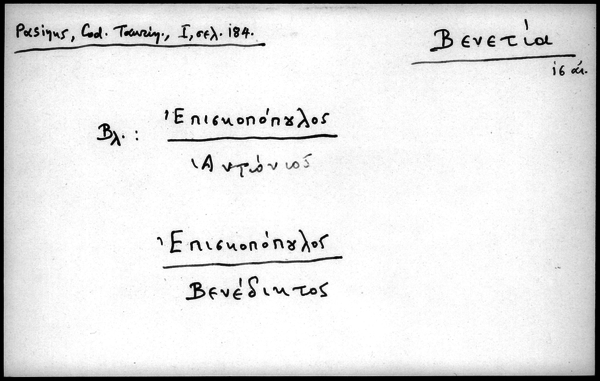 Pasinus, Cod. Taurin., I, σελ. 184.
Βενετία
16 αἰ.
Βλ. : Ἐπισκοπόπουλος
Ἀντώνιος
Ἐπισκοπόπουλος
Βενέδικτος